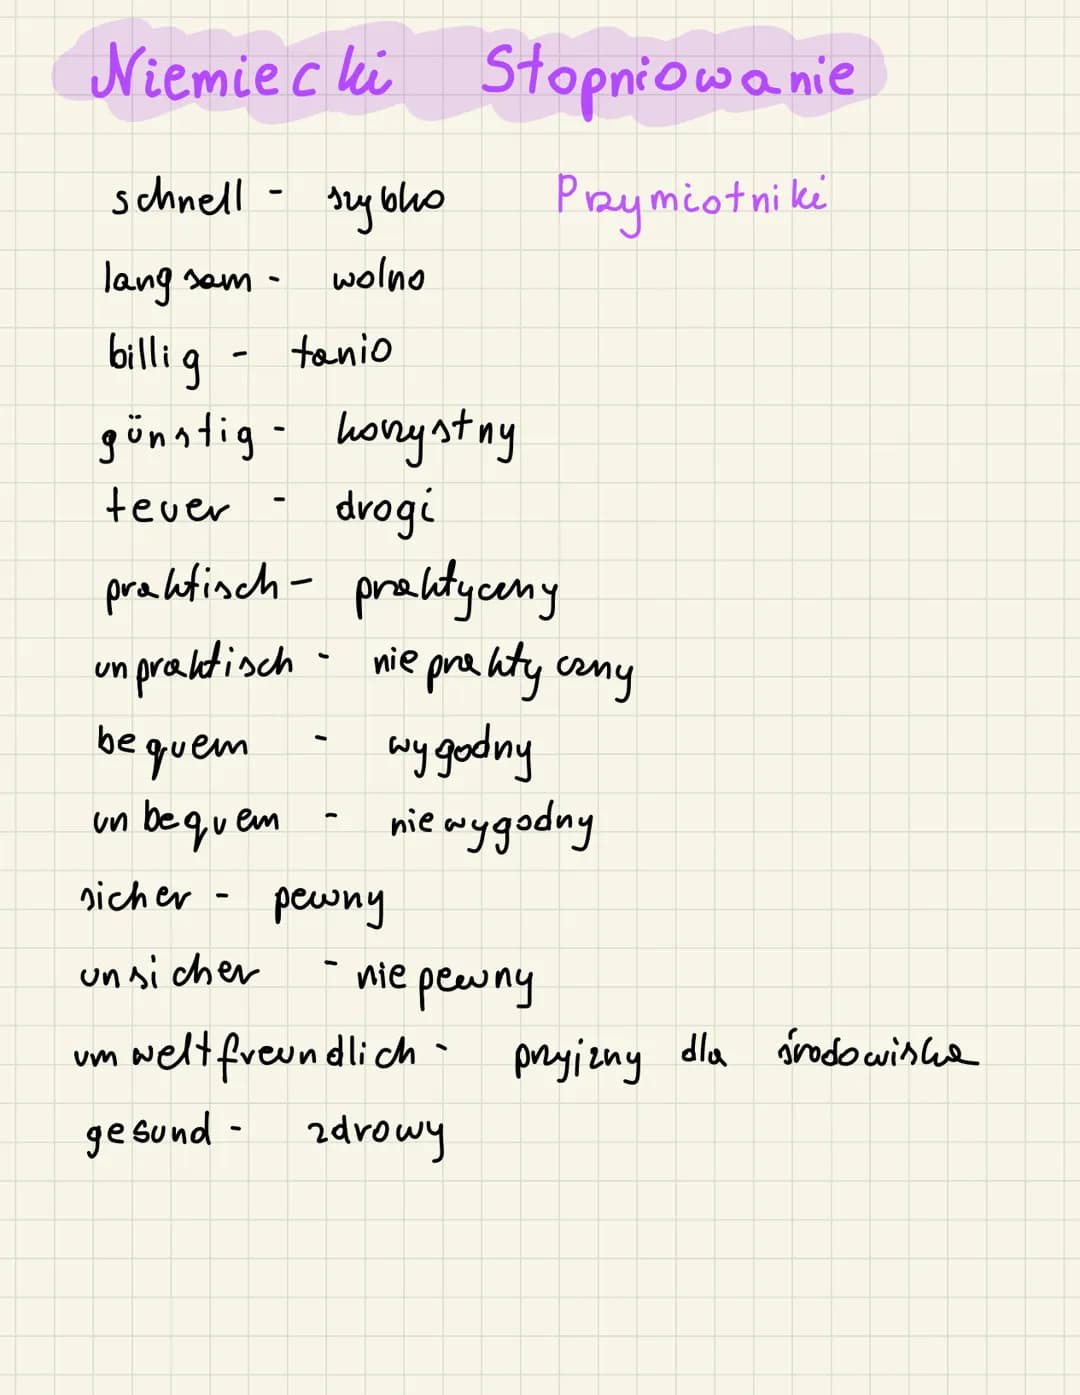 Niemiecki Stopniowanie
schnell - szybko Przymiotniki
langsam - wolno
billig - tanio
günstig - korzystny
teuer - drogi
praktisch - praktyczny
unpraktisch - niepraktyczny
bequem - wygodny
unbequem - niewygodny
sicher - pewny
unsicher - niepewny
umweltfreundlich - przyjzny dla środowiska
gesund - zdrowy